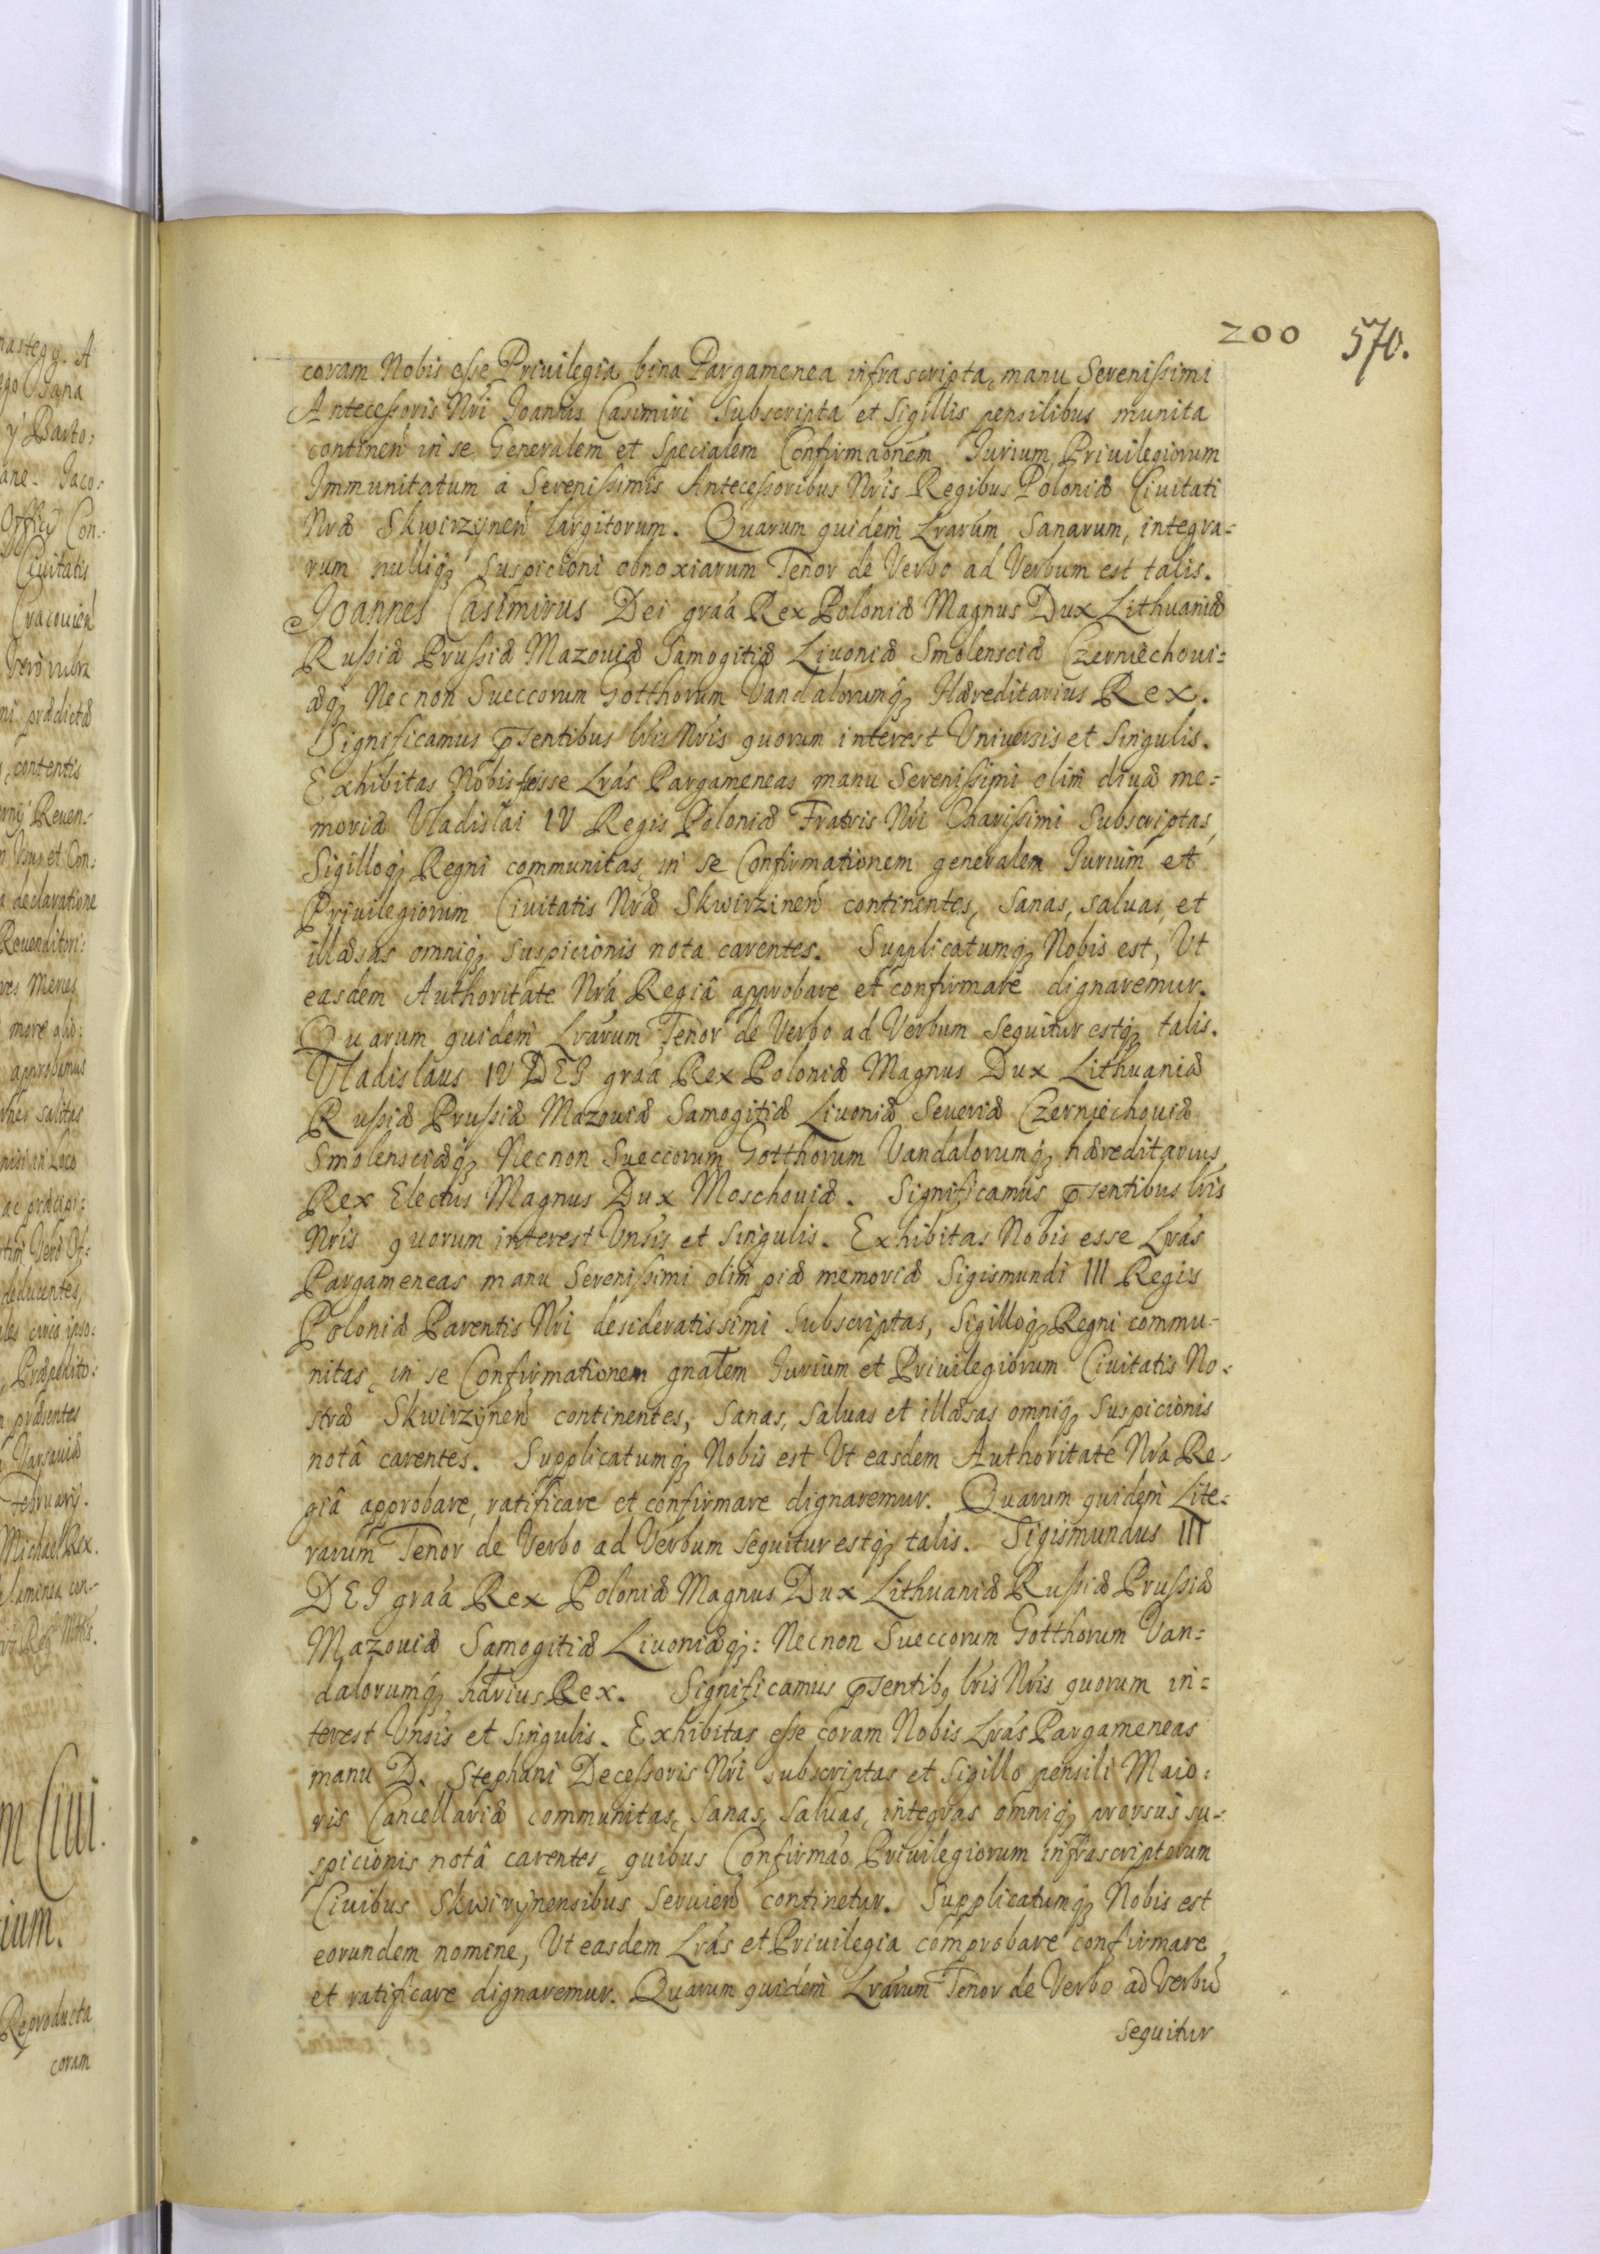 200 570.
coram Nobis esse Priuilegia bina Pargamenea infrascripta, manu Serenissimi
Antecessoris Nri Joannis Casimiri Subscripta et Sigillis pensilibus munita
continen in se Generalem et Specialem Confirmaonem Jurium Priuilegiorum
Immunitatum à Serenissimis Antecessoribus Nris Regibus Poloniæ Ciuitati
Nræ Skwirzÿnen largitorum. Quarum quidem Lrarum Sanarum, integra=
rum nulliq3 Suspicioni obnoxiarum Tenor de Verbo ad Verbum est talis.
Joannes Casimirus Dei graa Rex Poloniæ Magnus Dux Lithuaniæ
Russiæ Prussiæ Mazouiæ Samogitiæ Liuoniæ Smolensciæ Czerniechoui=
æq3 Necnon Sueccorum Gotthorum Vandalorumq3 Hæreditarius Rex.
Significamus pntibus lris Nris quorum interest Vniuersis et Singulis.
Exhibitas Nobis esse Lras Pargameneas manu Serenissimi olim diuæ me=
moriæ Vladislai IV Regis Poloniæ Fratris Nri Charissimi Subscriptas,
Sigilloq3 Regni communitas, in se Confirmationem generalem Jurium et
Priuilegiorum Ciuitatis Nræ Skwirzinen continentes, Sanas, saluas, et
illæsas omniq3 suspicionis nota carentes. Supplicatumq3 Nobis est, Ut
easdem Authoritate Nra Regiâ approbare et confirmare dignaremur.
Quarum quidem Lrarum Tenor de Verbo ad Verbum sequitur estq3 talis.
Vladislaus IV DEI graa Rex Poloniæ Magnus Dux Lithuaniæ
Russiæ Prussiæ Mazouiæ Samogitiæ Liuoniæ Seueriæ Czerniechouiæ
Smolensciæq3 Necnon Sueccorum Gotthorum Vandalorumq3 hæreditarius
Rex Electus Magnus Dux Moschouiæ. Significamus pntibus lris
Nris quorum interest Vnsis et Singulis. Exhibitas Nobis esse Lras
Pargameneas manu Serenissimi olim piæ memoriæ Sigismundi III Regis
Poloniæ Parentis Nri desideratissimi Subscriptas, Sigilloq3 Regni commu=
nitas, in se Confirmationem gnalem Jurium et Priuilegiorum Ciuitatis No=
stræ Skwirzÿnen continentes, Sanas, Saluas et illæsas omniq3 Suspicionis
notâ carentes. Supplicatumq3 Nobis est Ut easdem Authoritate Nra Re=
giâ approbare, ratificare et confirmare dignaremur. Quarum quidem Lite=
rarum Tenor de Verbo ad Verbum sequitur estq3 talis. Sigismundus III
DEI graa Rex Poloniæ Magnus Dux Lithuaniæ Russiæ Prussiæ
Mazouiæ Samogitiæ Liuoniæq3: Necnon Sueccorum Gotthorum Van=
dalorumq3 hærius Rex. Significamus pntib9 lris Nris quorum in=
terest Vnsis et Singulis. Exhibitas esse coram Nobis Lras Pargameneas
manu D. Stephani Decessoris Nri subscriptas et Sigillo pensili Maio=
ris Cancellariæ communitas, Sanas, Saluas, integras omniq3 prorsus su=
spicionis notâ carentes, quibus Confirmao Priuilegiorum infrascriptorum
Ciuibus Skwirÿnensibus Seruien continetur. Supplicatumq3 Nobis est
eorundem nomine, Ut easdem Lras et Priuilegia comprobare confirmare
et ratificare dignaremur. Quarum quidem Lrarum Tenor de Verbo ad Verbu
sequitur